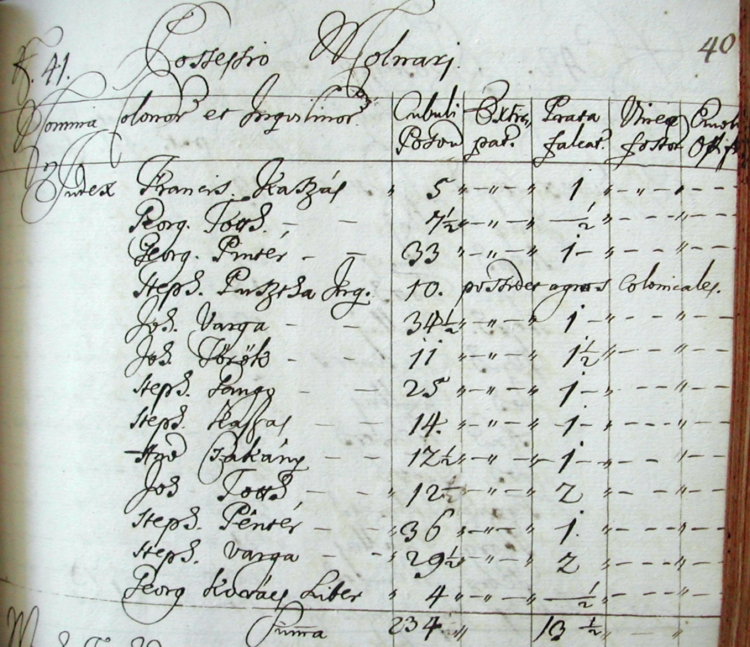 F. 41. Possessio Molnarj. 40
Nomina Colonor et Inqvilinor Cubuli Poson Extir, pat. Prata falcat. Vinea fossor
Judex Francis. Kaszás " 5 " - " - " 1 " - " - - - " -
Georg. Tótth. - - 7½ " - " - " ½ " - - - " -
Georg. Pintér, - - 33 " - " - " 1 - " - - - " -
Steph. Pusztha Inq. 10. possidet agros Colonicales.
Joh. Varga - - 34½ " - " - " 1 - " - - - " -
Joh Török - - 11 " - " - " 1½ " - - - " -
Steph. - - 25 " - " - " 1 - " - - - " -
Steph. - - 14. " - " - " 1 - " - - - " -
And Csákány - - 12½ " - " - " 1 - " - - - " -
Joh Totth, - - " 12½ " - " - " 2 " - - - " -
Steph. Pénter, - - " 36 " - " - " 1. " - - - " -
Steph. Varga - - " 29½ " - " - " 2 " - - - " -
Georg Kovács Liber " 4 " - " - " ½ " - - - " -
Summa 234 " 13½ " "